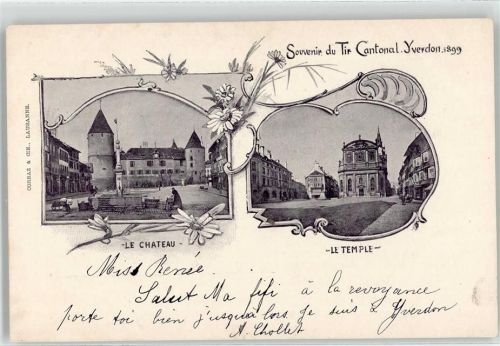 Souvenir du Tir Cantonal. Yverdon. 1899
CORBAZ & CIE., LAUSANNE.
-LE CHATEAU-
-LE TEMPLE-
Miss Renée.
Salut Ma fifi à la revoyance
porte toi bien jusqu'a lors je suis à Yverdon
A. Chollet